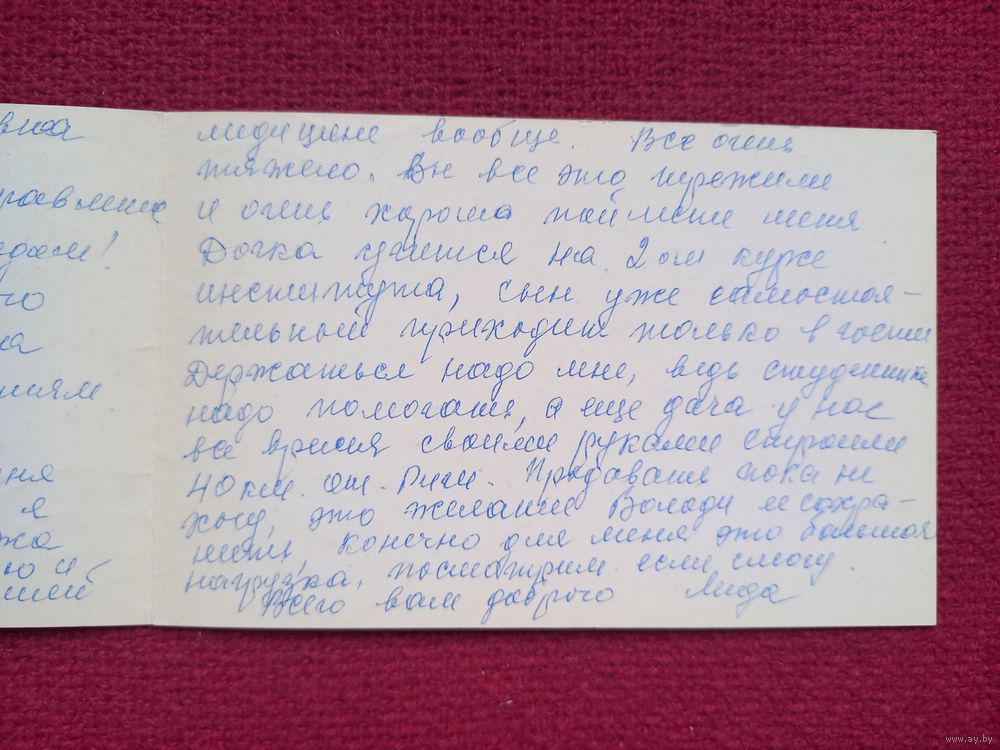 вида
равление
дом!
го
ка
ниям
ня
я
жа
ю и
шей
медицине вообще. Все очень
тяжело. Вы все это пережили
и очень хорошо поймете меня.
Дочка учится на 2 ом курсе
института, сын уже самостоя-
тельный приходит только в гости
Держаться надо мне, ведь студентке
надо помогать, а еще дача у нас
все время своими руками строили
40 км. от. Риги. Продавать пока не
хочу, это желание Володи и сохра-
нить, конечно для меня это большая
нагрузка, посмотрим если смогу.
Всего вам доброго Лида
www.ay.by